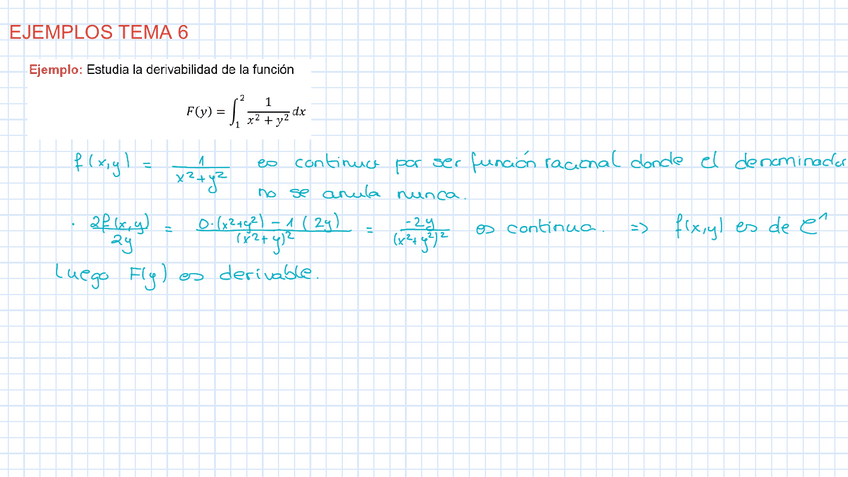 EJEMPLOS TEMA 6
Ejemplo: Estudia la derivabilidad de la función
F(y) = ∫₁² 1/(x² + y²) dx
f(x,y) = 1/(x²+y²) es continua por ser función racional donde el denominador
no se anula nunca.
· ∂f(x,y)/∂y = (0·(x²+y²) - 1(2y))/(x²+y)² = -2y/(x²+y²)² es continua. => f(x,y) es de C¹
Luego F(y) es derivable.